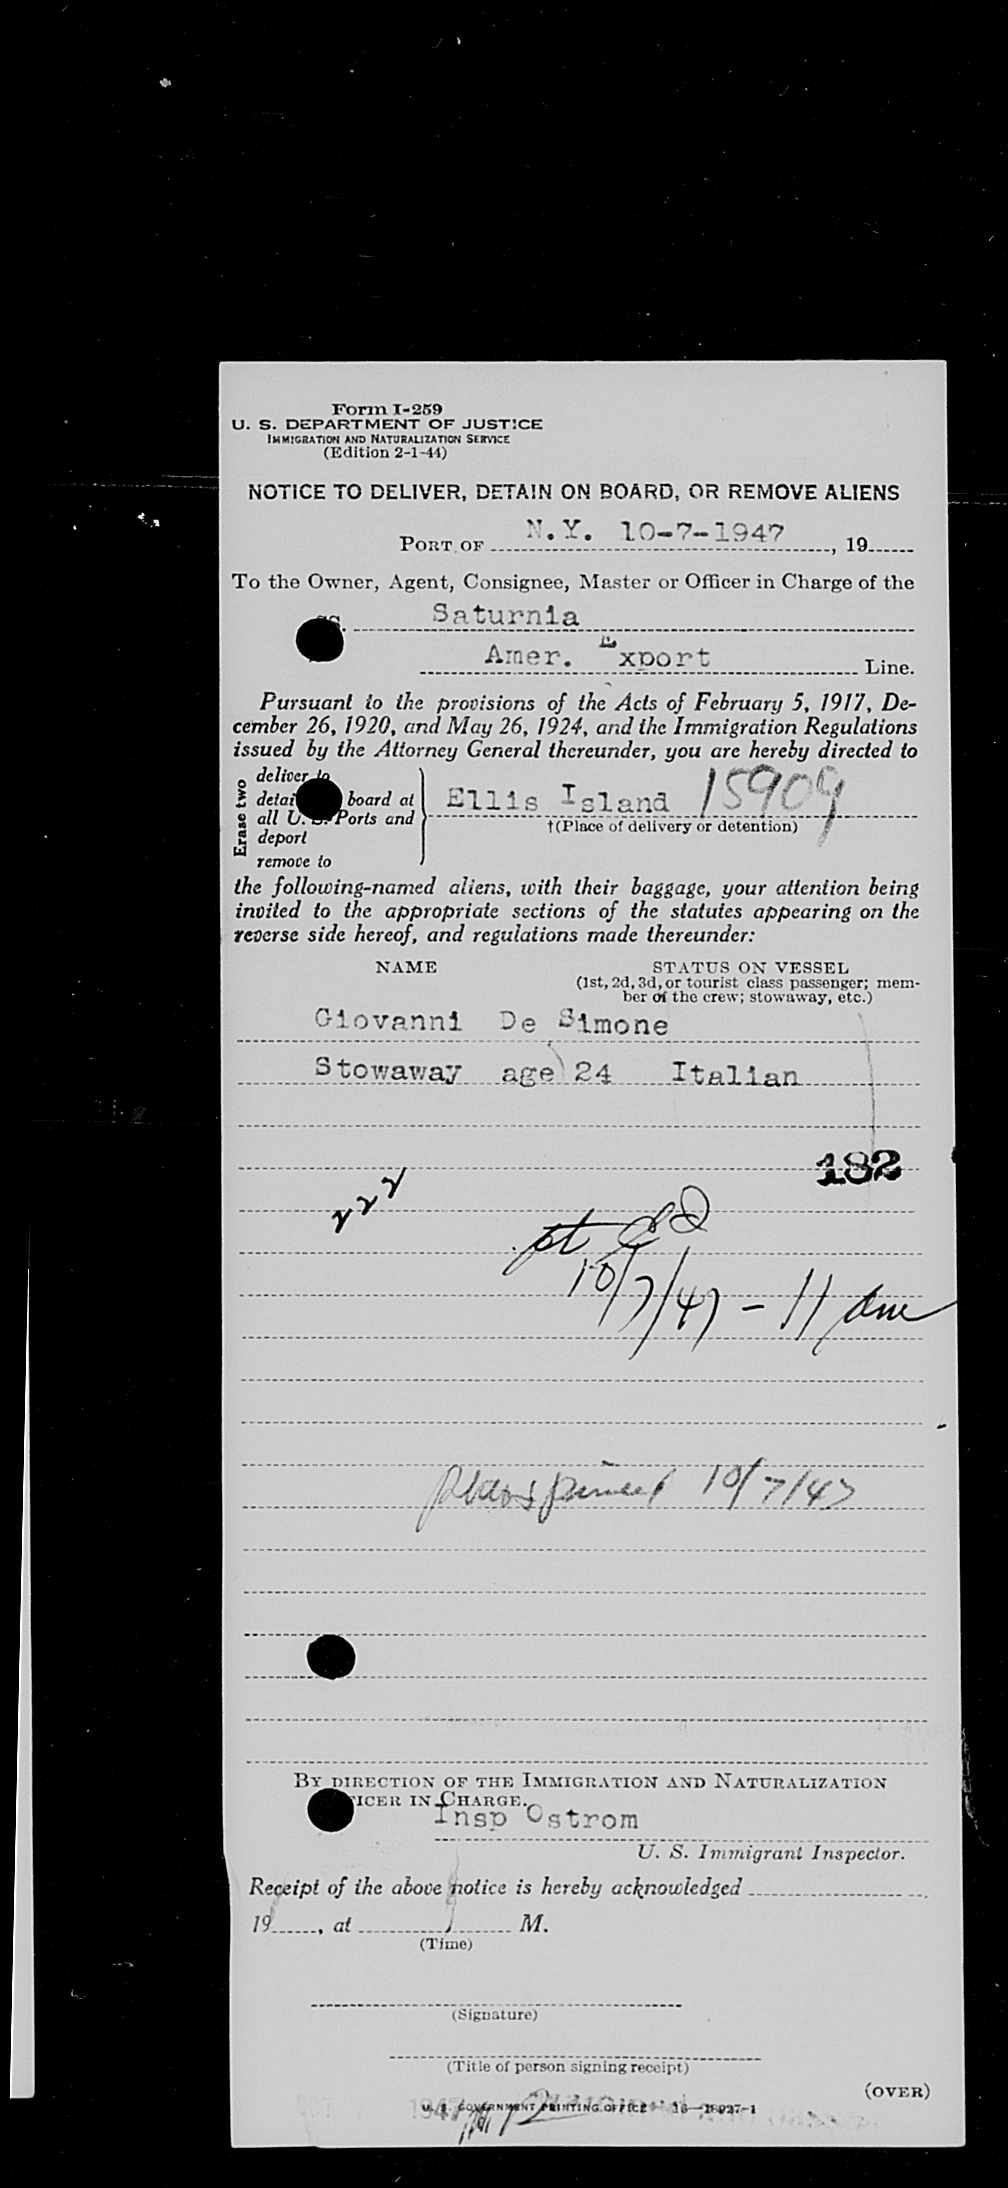 Form I-259
U. S. DEPARTMENT OF JUSTICE
IMMIGRATION AND NATURALIZATION SERVICE
(Edition 2-1-44)
NOTICE TO DELIVER, DETAIN ON BOARD, OR REMOVE ALIENS
PORT OF N.Y. 10-7-1947, 19
To the Owner, Agent, Consignee, Master or Officer in Charge of the
SS. Saturnia
Amer. Export Line.
Pursuant to the provisions of the Acts of February 5, 1917, De-
cember 26, 1920, and May 26, 1924, and the Immigration Regulations
issued by the Attorney General thereunder, you are hereby directed to
Erase two
deliver to
detai board at
all U. S. Ports and
deport
remove to
Ellis Island 15909
†(Place of delivery or detention)
the following-named aliens, with their baggage, your attention being
invited to the appropriate sections of the statutes appearing on the
reverse side hereof, and regulations made thereunder:
NAME STATUS ON VESSEL
(1st, 2d, 3d, or tourist class passenger; mem-
ber of the crew; stowaway, etc.)
Giovanni De Simone
Stowaway age 24 Italian
182
222
10/7/47 - 11 am
10/7/47
BY DIRECTION OF THE IMMIGRATION AND NATURALIZATION
ICER IN CHARGE.
Insp Ostrom
U. S. Immigrant Inspector.
Receipt of the above notice is hereby acknowledged
19, at M.
(Time)
(Signature)
(Title of person signing receipt)
(OVER)
1947
U. S. GOVERNMENT PRINTING OFFICE 16—18927-1